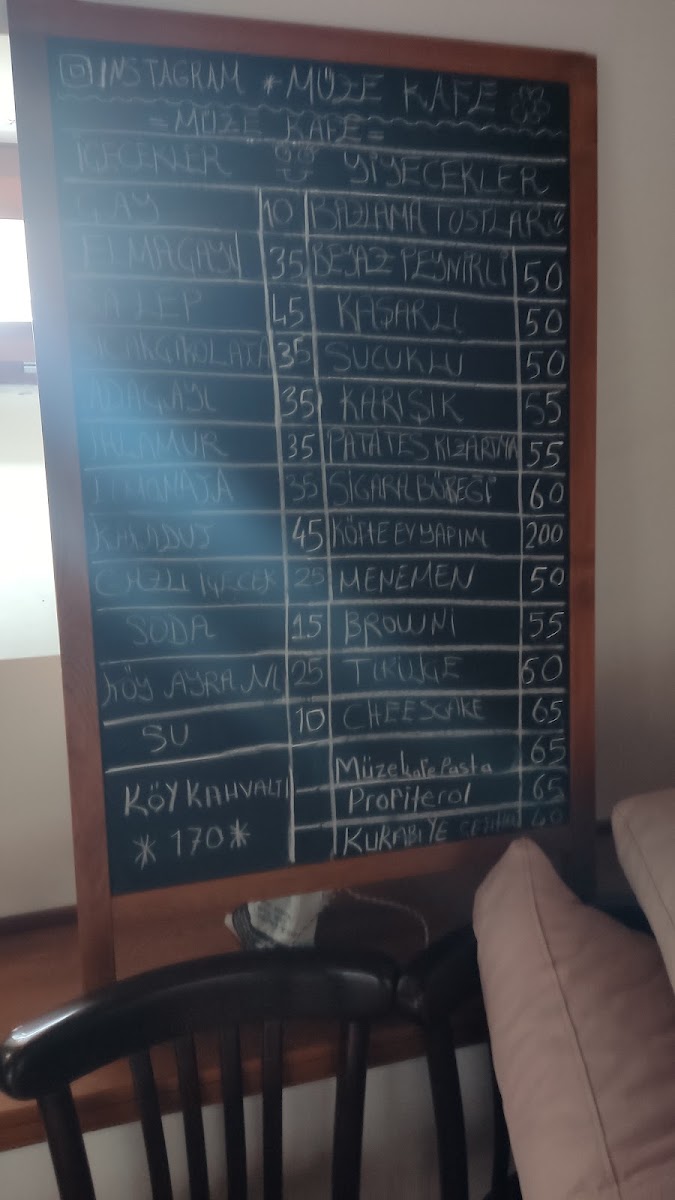 INSTAGRAM *MÜZE KAFE
=MÜZE KAFE=
İÇECEKLER YİYECEKLER
ÇAY 10 BAZLAMA TOSTLAR
ELMAÇAYI 35 BEYAZ PEYNİRLİ 50
SALEP 45 KAŞARLI 50
SICAKÇİKOLATA 35 SUCUKLU 50
ADAÇAYI 35 KARIŞIK 55
IHLAMUR 35 PATATES KIZARTMA 55
LİMONATA 35 SİGARA BÖREĞİ 60
KARADUT 45 KÖFTE EV YAPIMI 200
GAZLI İÇECEK 25 MENEMEN 50
SODA 15 BROWNİ 55
KÖY AYRANI 25 60
SU 10 CHEESCAKE 65
Müzekafe Pasta 65
KÖY KAHVALTI Profiterol 65
*170* KURABİYE 60